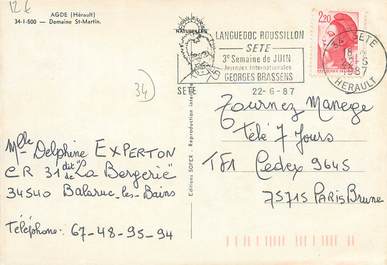 12€
AGDE (Hérault)
34-1-500 — Domaine St-Martin.
34
LANGUEDOC ROUSSILLON
SETE
3e Semaine de JUIN
Journées Internationales
GEORGES BRASSENS
SETE 22-6-87
2,20
34 SETE
1987
HERAULT
Editions SOFER - Reproduction
Tournez Manege
Télé 7 Jours
TF1 Cedex 9645
75715 Paris Brune
Mlle Delphine EXPERTON
CR 31 dit "La Bergerie"
de
34540 Balaruc-les-Bains
Téléphone: 67-48-95-94